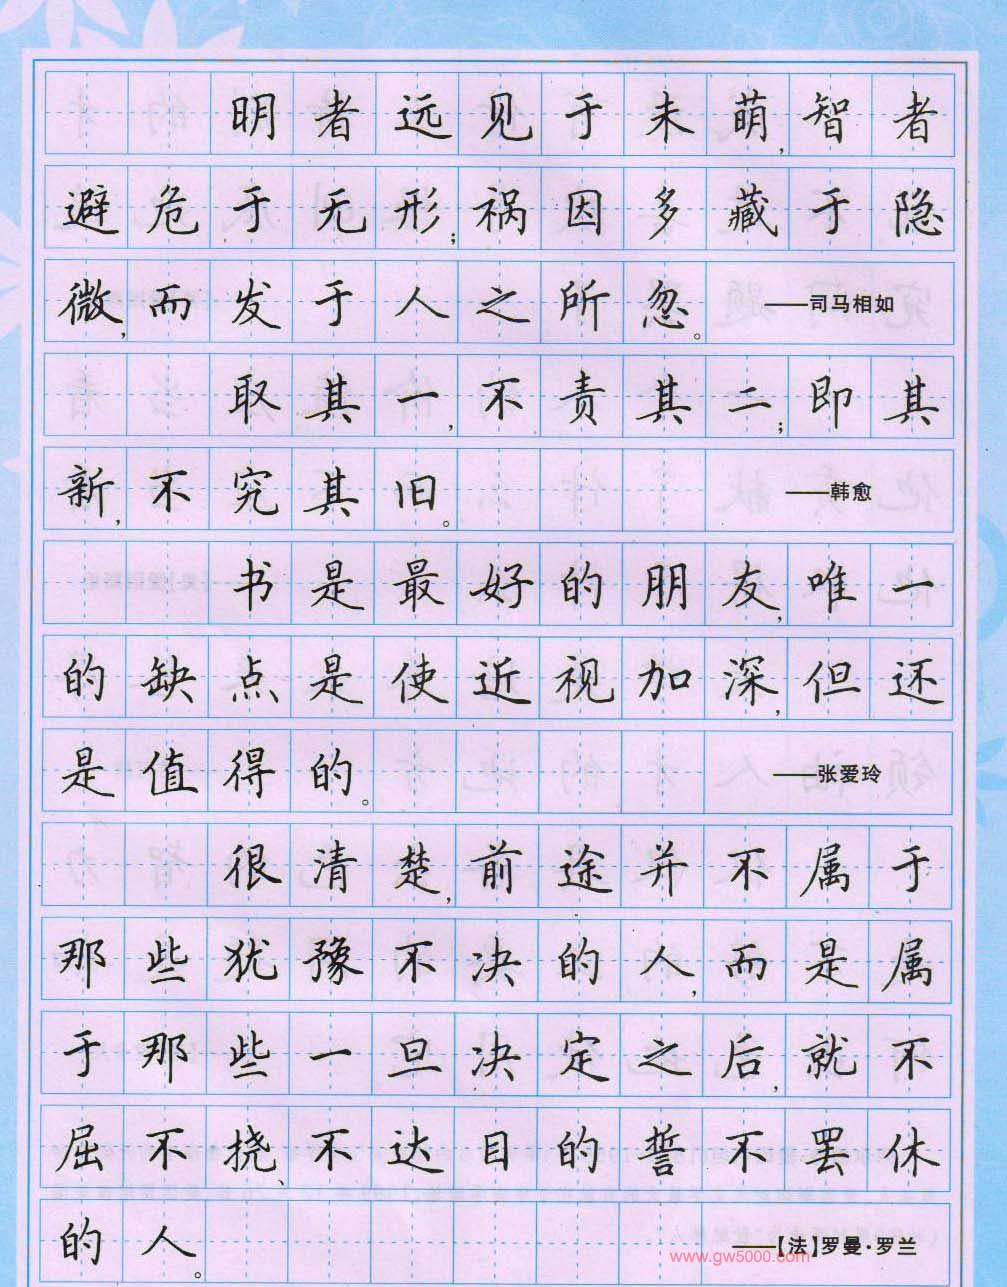 明者远见于未萌,智者
避危于无形;祸因多藏于隐
微,而发于人之所忽。——司马相如
取其一,不责其二;即其
新,不究其旧。——韩愈
书是最好的朋友,唯一
的缺点是使近视加深,但还
是值得的。——张爱玲
很清楚,前途并不属于
那些犹豫不决的人,而是属
于那些一旦决定之后,就不
屈不挠、不达目的誓不罢休
的人。——【法】罗曼·罗兰
www.gw5000.com